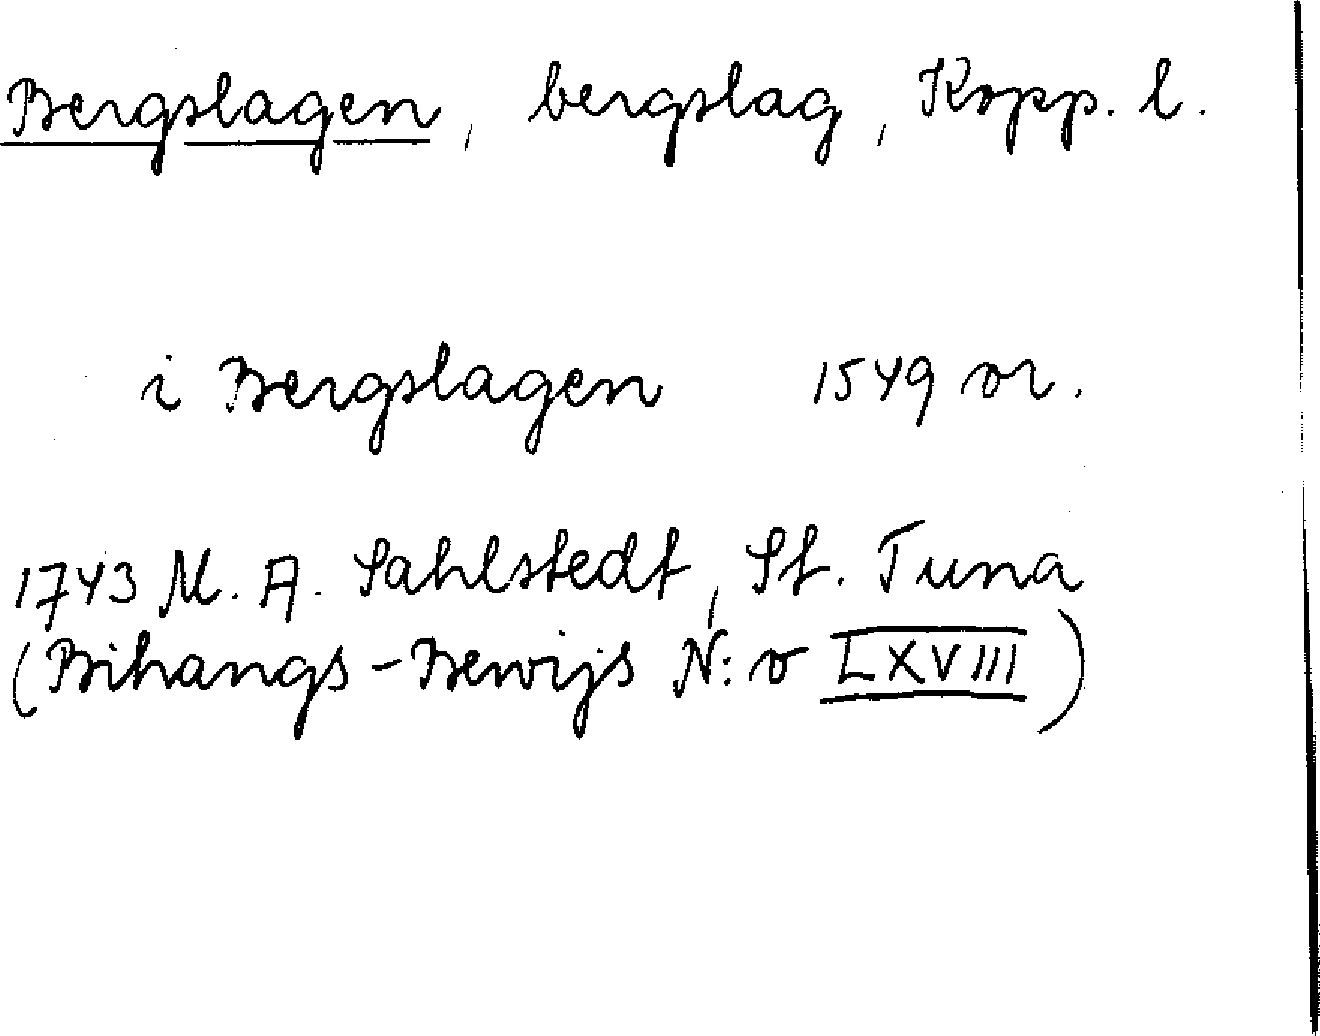 Bergslagen, bergslag, Kopp. l.
i Bergslagen 1549 or.
1743 M. A. Sahlstedt, St. Tuna
(Bihangs-Bewijs N:o LXVIII)